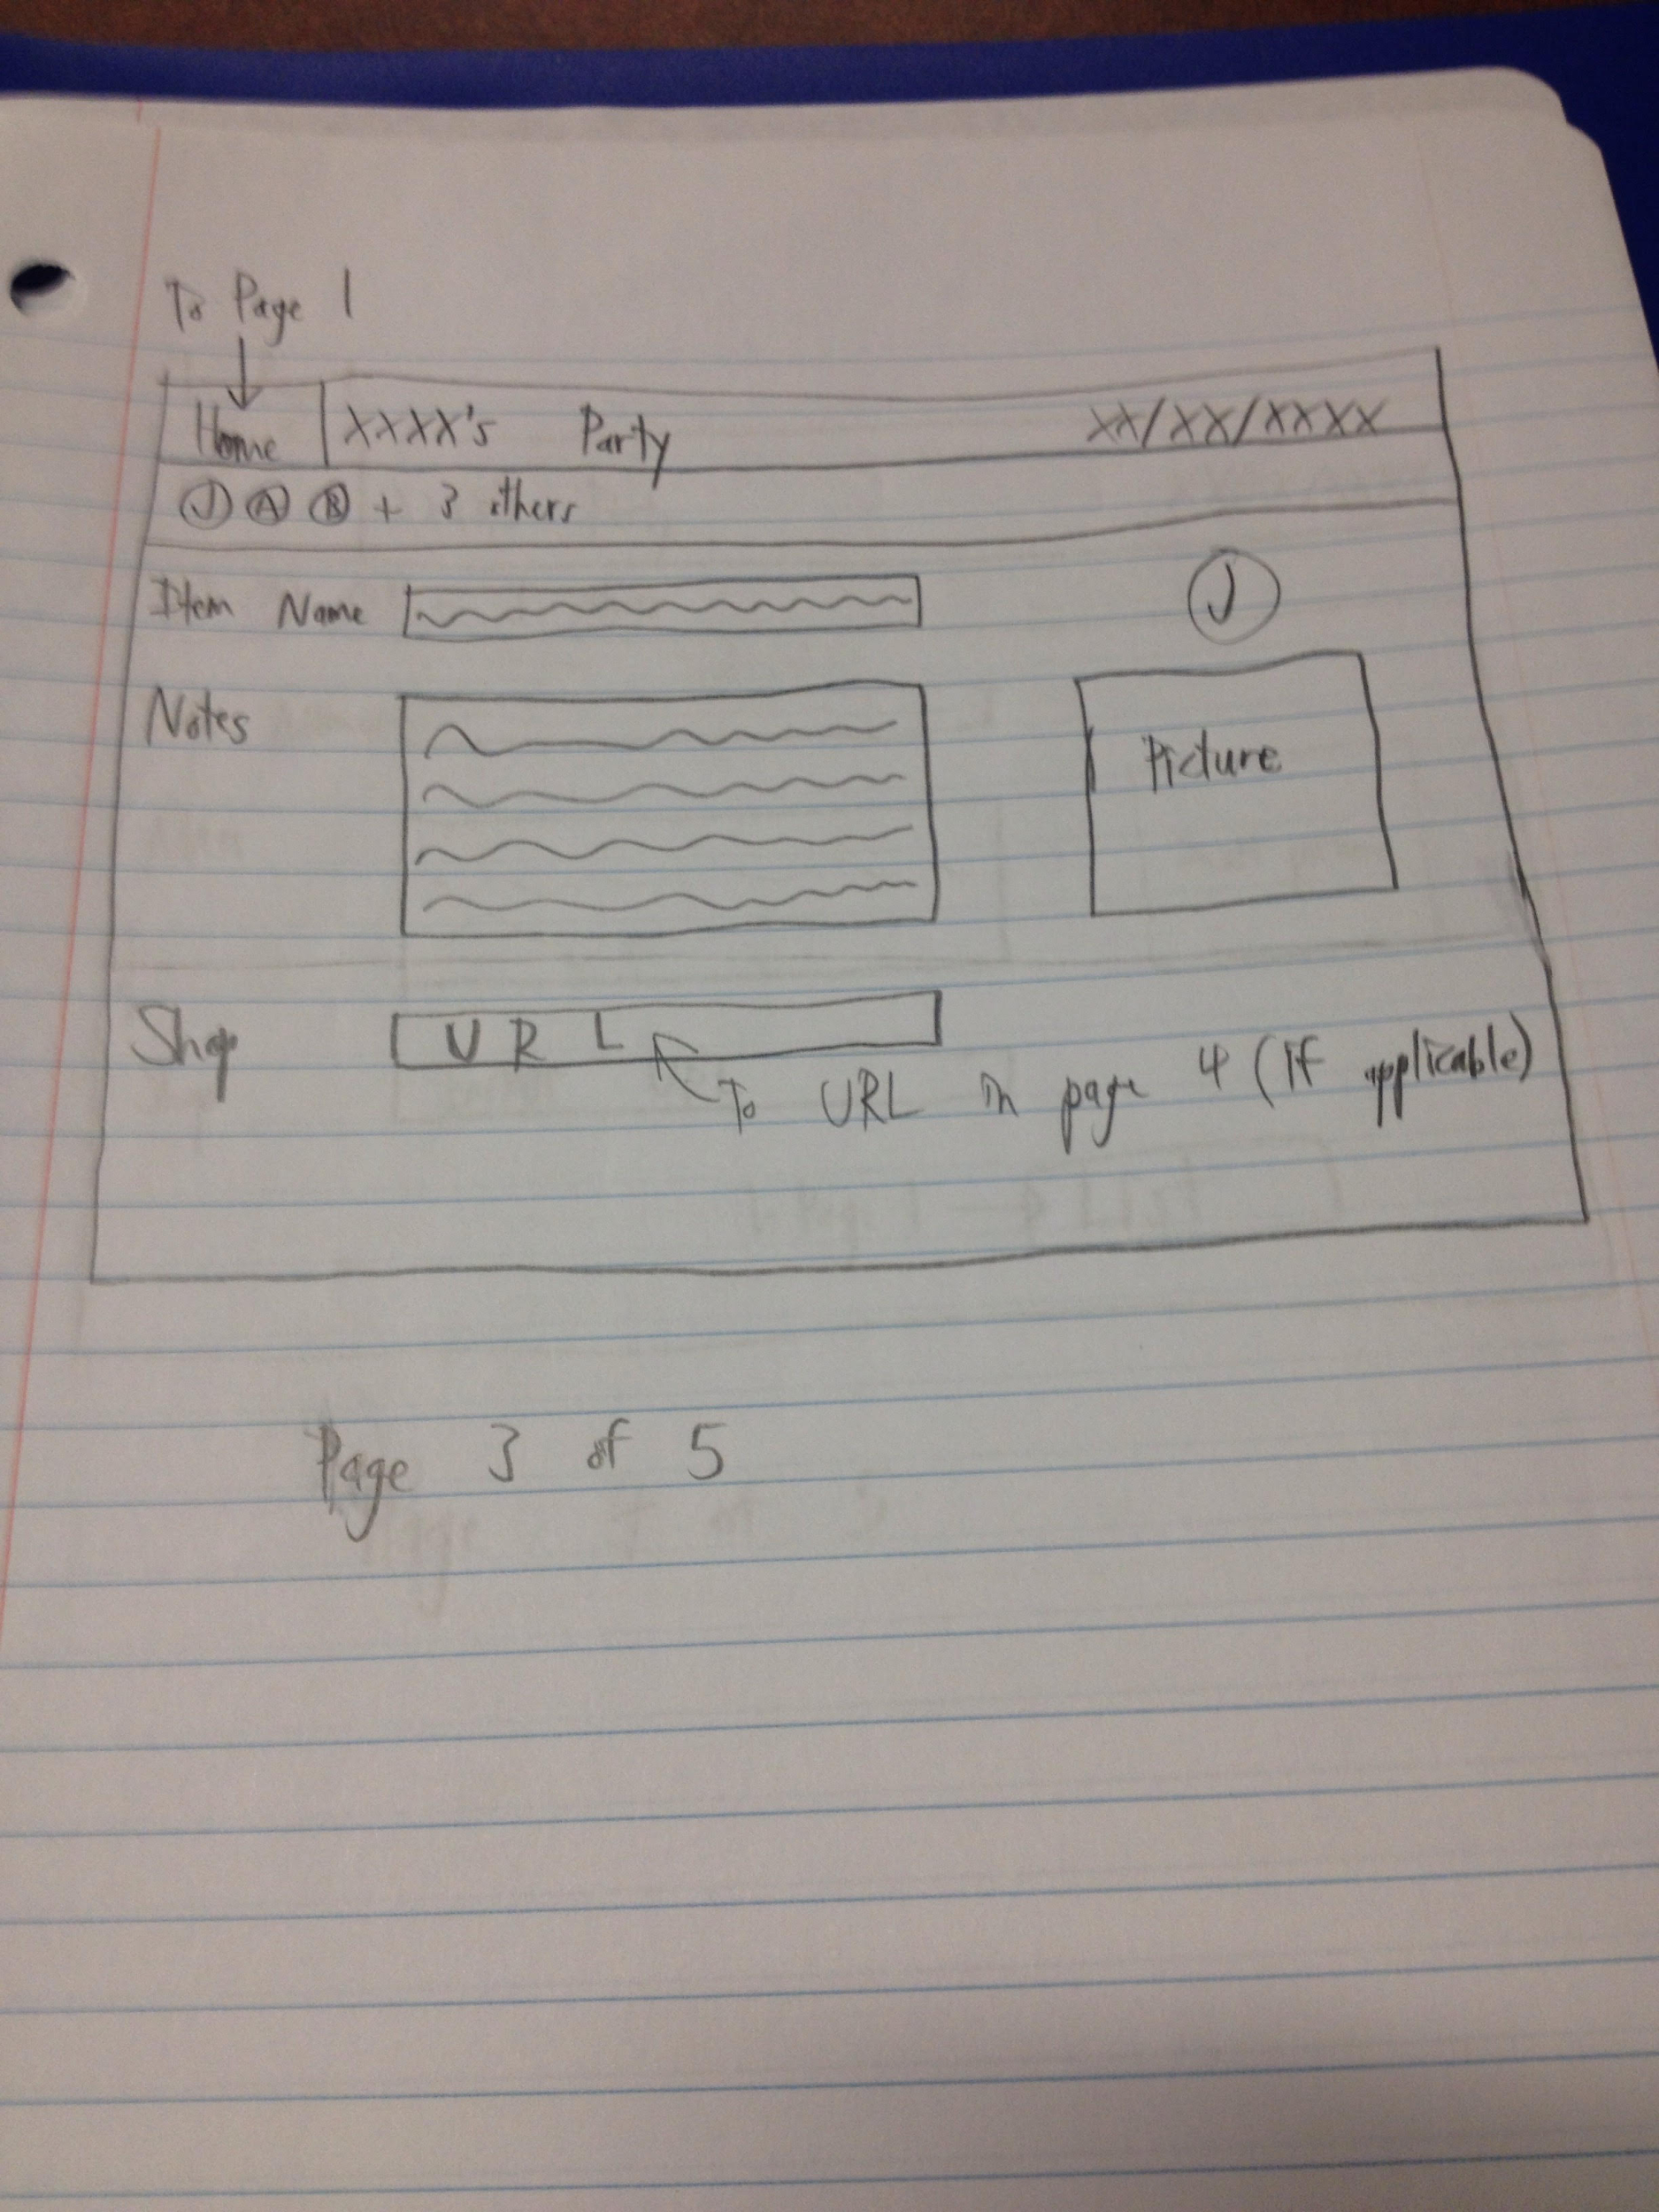 To Page 1
Home XXXX's Party XX/XX/XXXX
J A B + 3 others
Item Name J
Notes
Picture
Shop URL
To URL in page 4 (If applicable)
Page 3 of 5